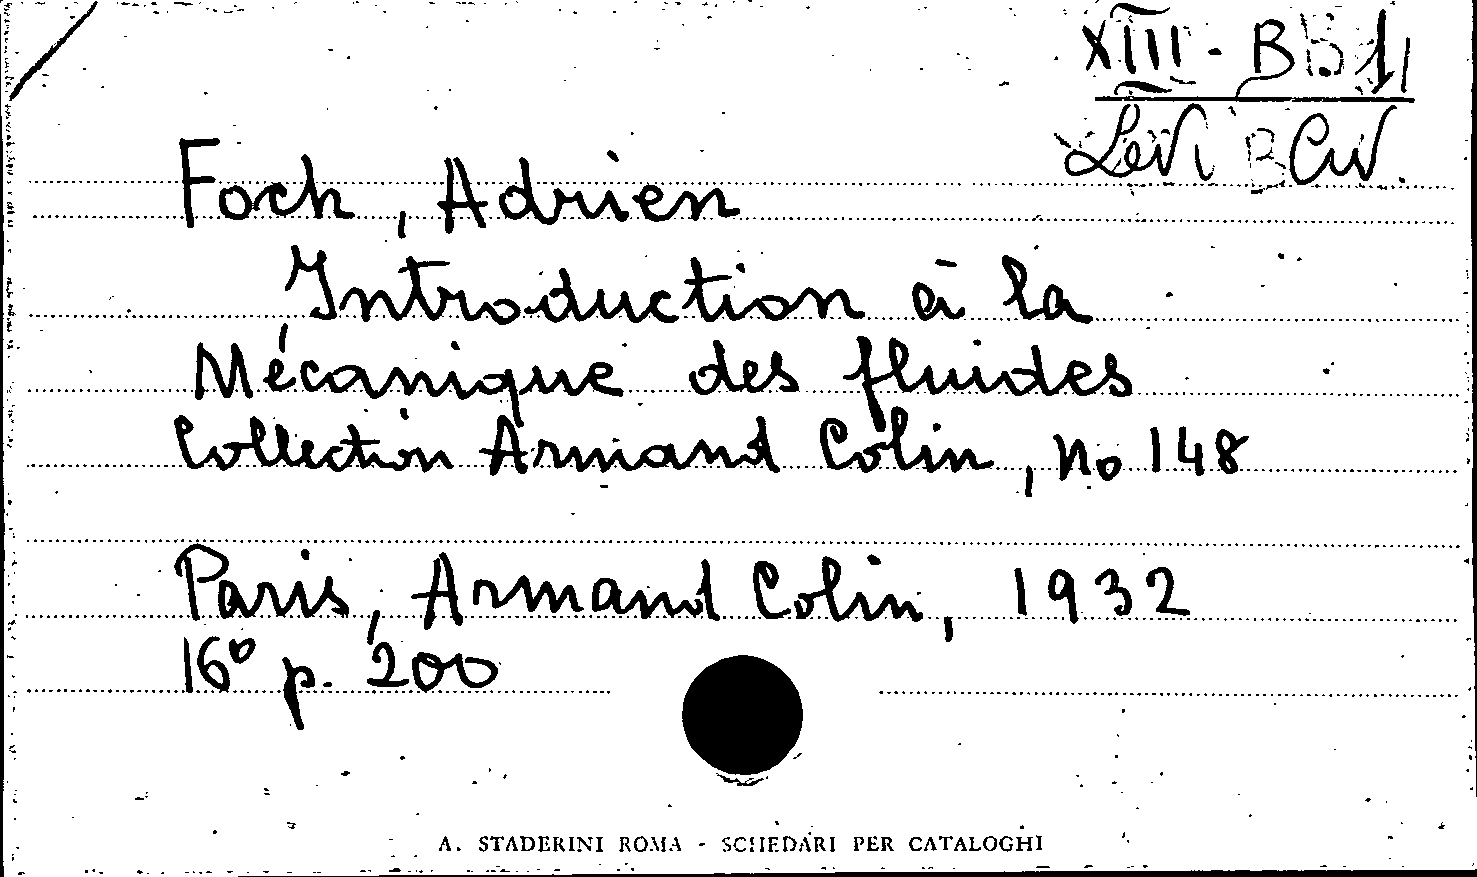 XIII - B
Levi Civ.
Foch, Adrien
Introduction à la
Mécanique des fluides
Collection Armand Colin, no 148
Paris, Armand Colin, 1932
16° p. 200
A. STADERINI ROMA - SCHEDARI PER CATALOGHI